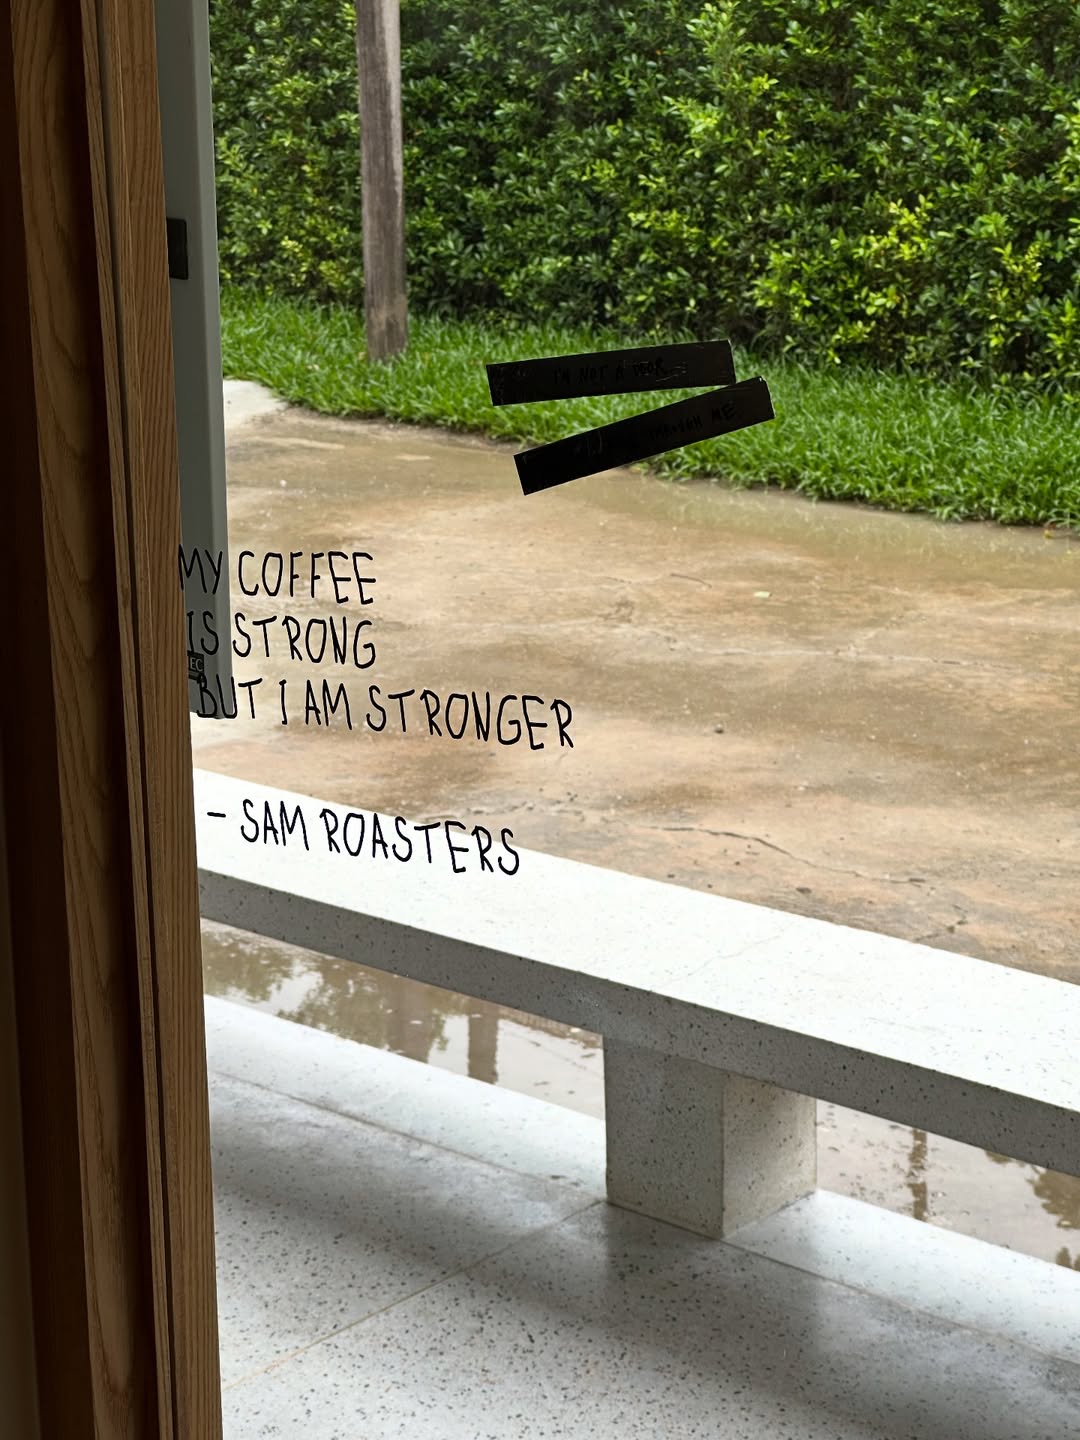 I'M NOT A DOOR
THROUGH ME
MY COFFEE
IS STRONG
BUT I AM STRONGER
- SAM ROASTERS